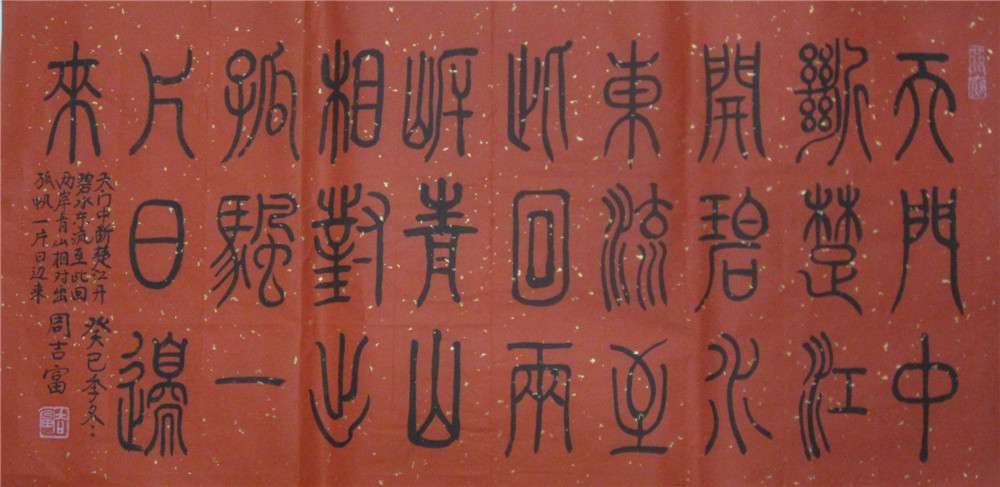 天門中
斷楚江
開碧水
東流至
此回兩
岸青山
相對出
孤颿一
片日邊
來
天门中断楚江开
碧水东流至此回
两岸青山相对出
孤帆一片日边来
癸巳季冬
周吉富